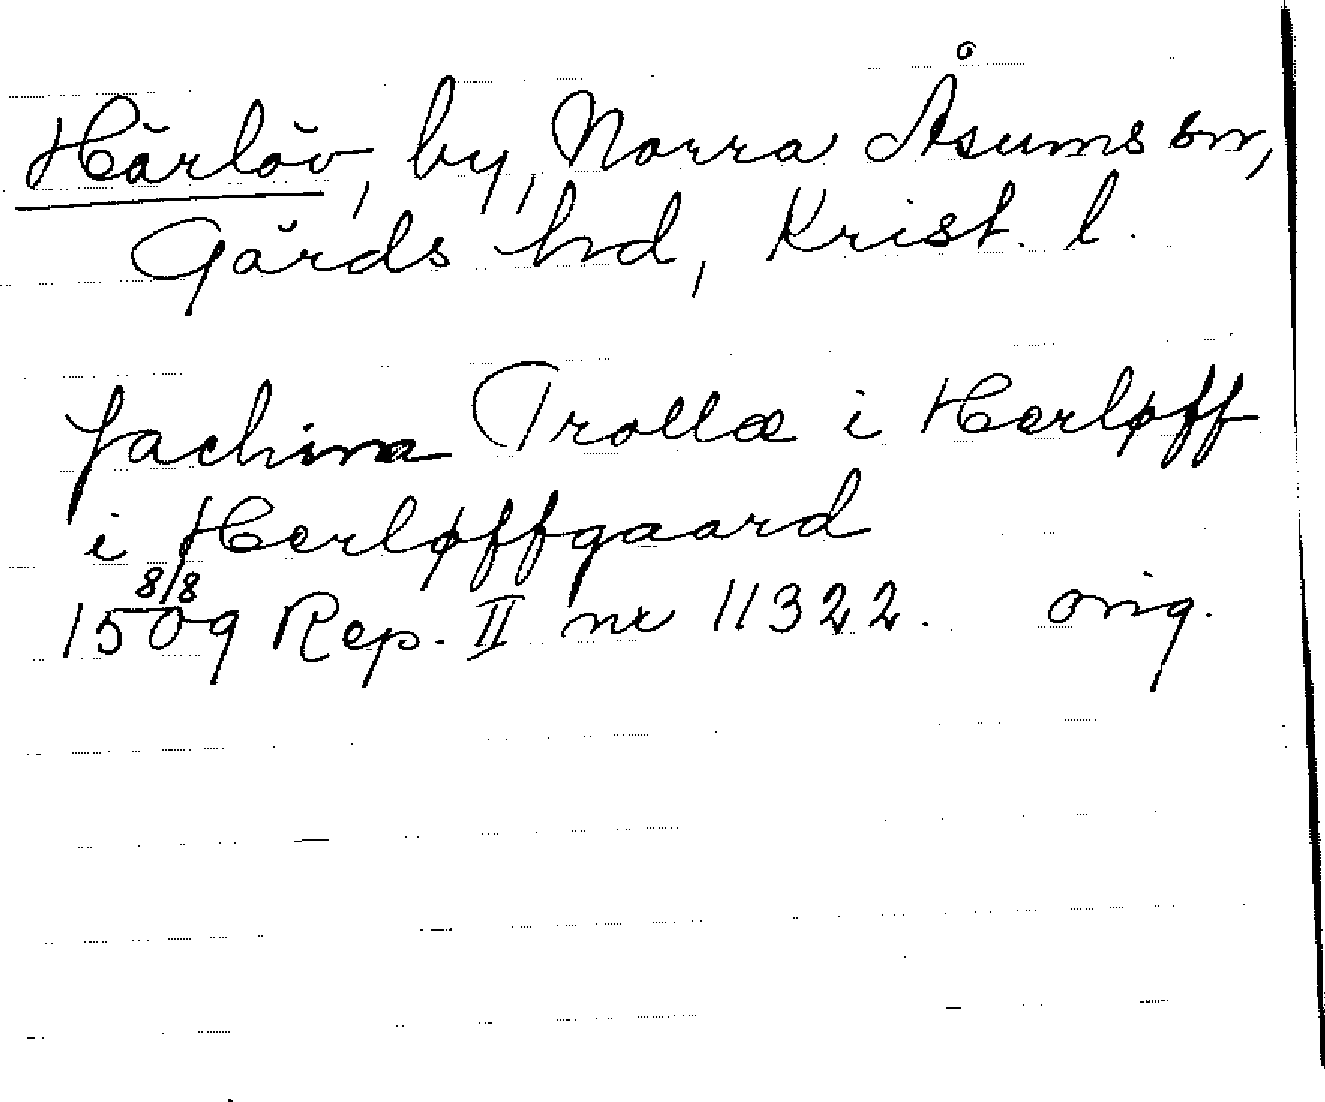 Härlöv, by, Norra Åsums sn,
Gärds hd, Krist. l.
Jachim Trollæ i Herløff
i Herløffgaard
8/8
1509 Rep. II nr 11322. orig.